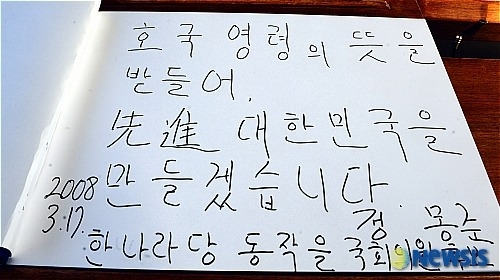 호국영령의 뜻을
받들어,
先進 대한민국을
만들겠습니다.
2008
3.17.
정 몽준
한나라당 동작을 국회의원
NEWSIS